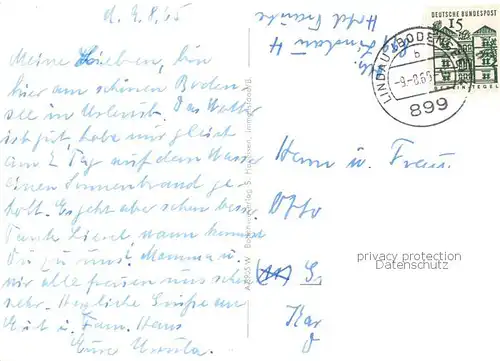 d. 9.8.65
Meine Lieben, bin
hier am schönen Boden-
see in Urlaub. Das Wetter
ist gut, habe mir gleich
am 2. Tag auf dem Wasser
einen Sonnenbrand ge-
holt. Es geht aber schon besser.
Tante Liesel, wann kommst
Du zu uns? Mamma u.
wir alle freuen uns schon
sehr. Herzliche Grüße an
Erit u. Fam. Haus
Eure Ursula.
Hotel
Lindau
DEUTSCHE BUNDESPOST
15
TEGEL
LINDAU (BODENSEE)
b
-9.-8.65
899
Herrn u. Frau
Otto
S.
Kar
privacy protection
Datenschutz